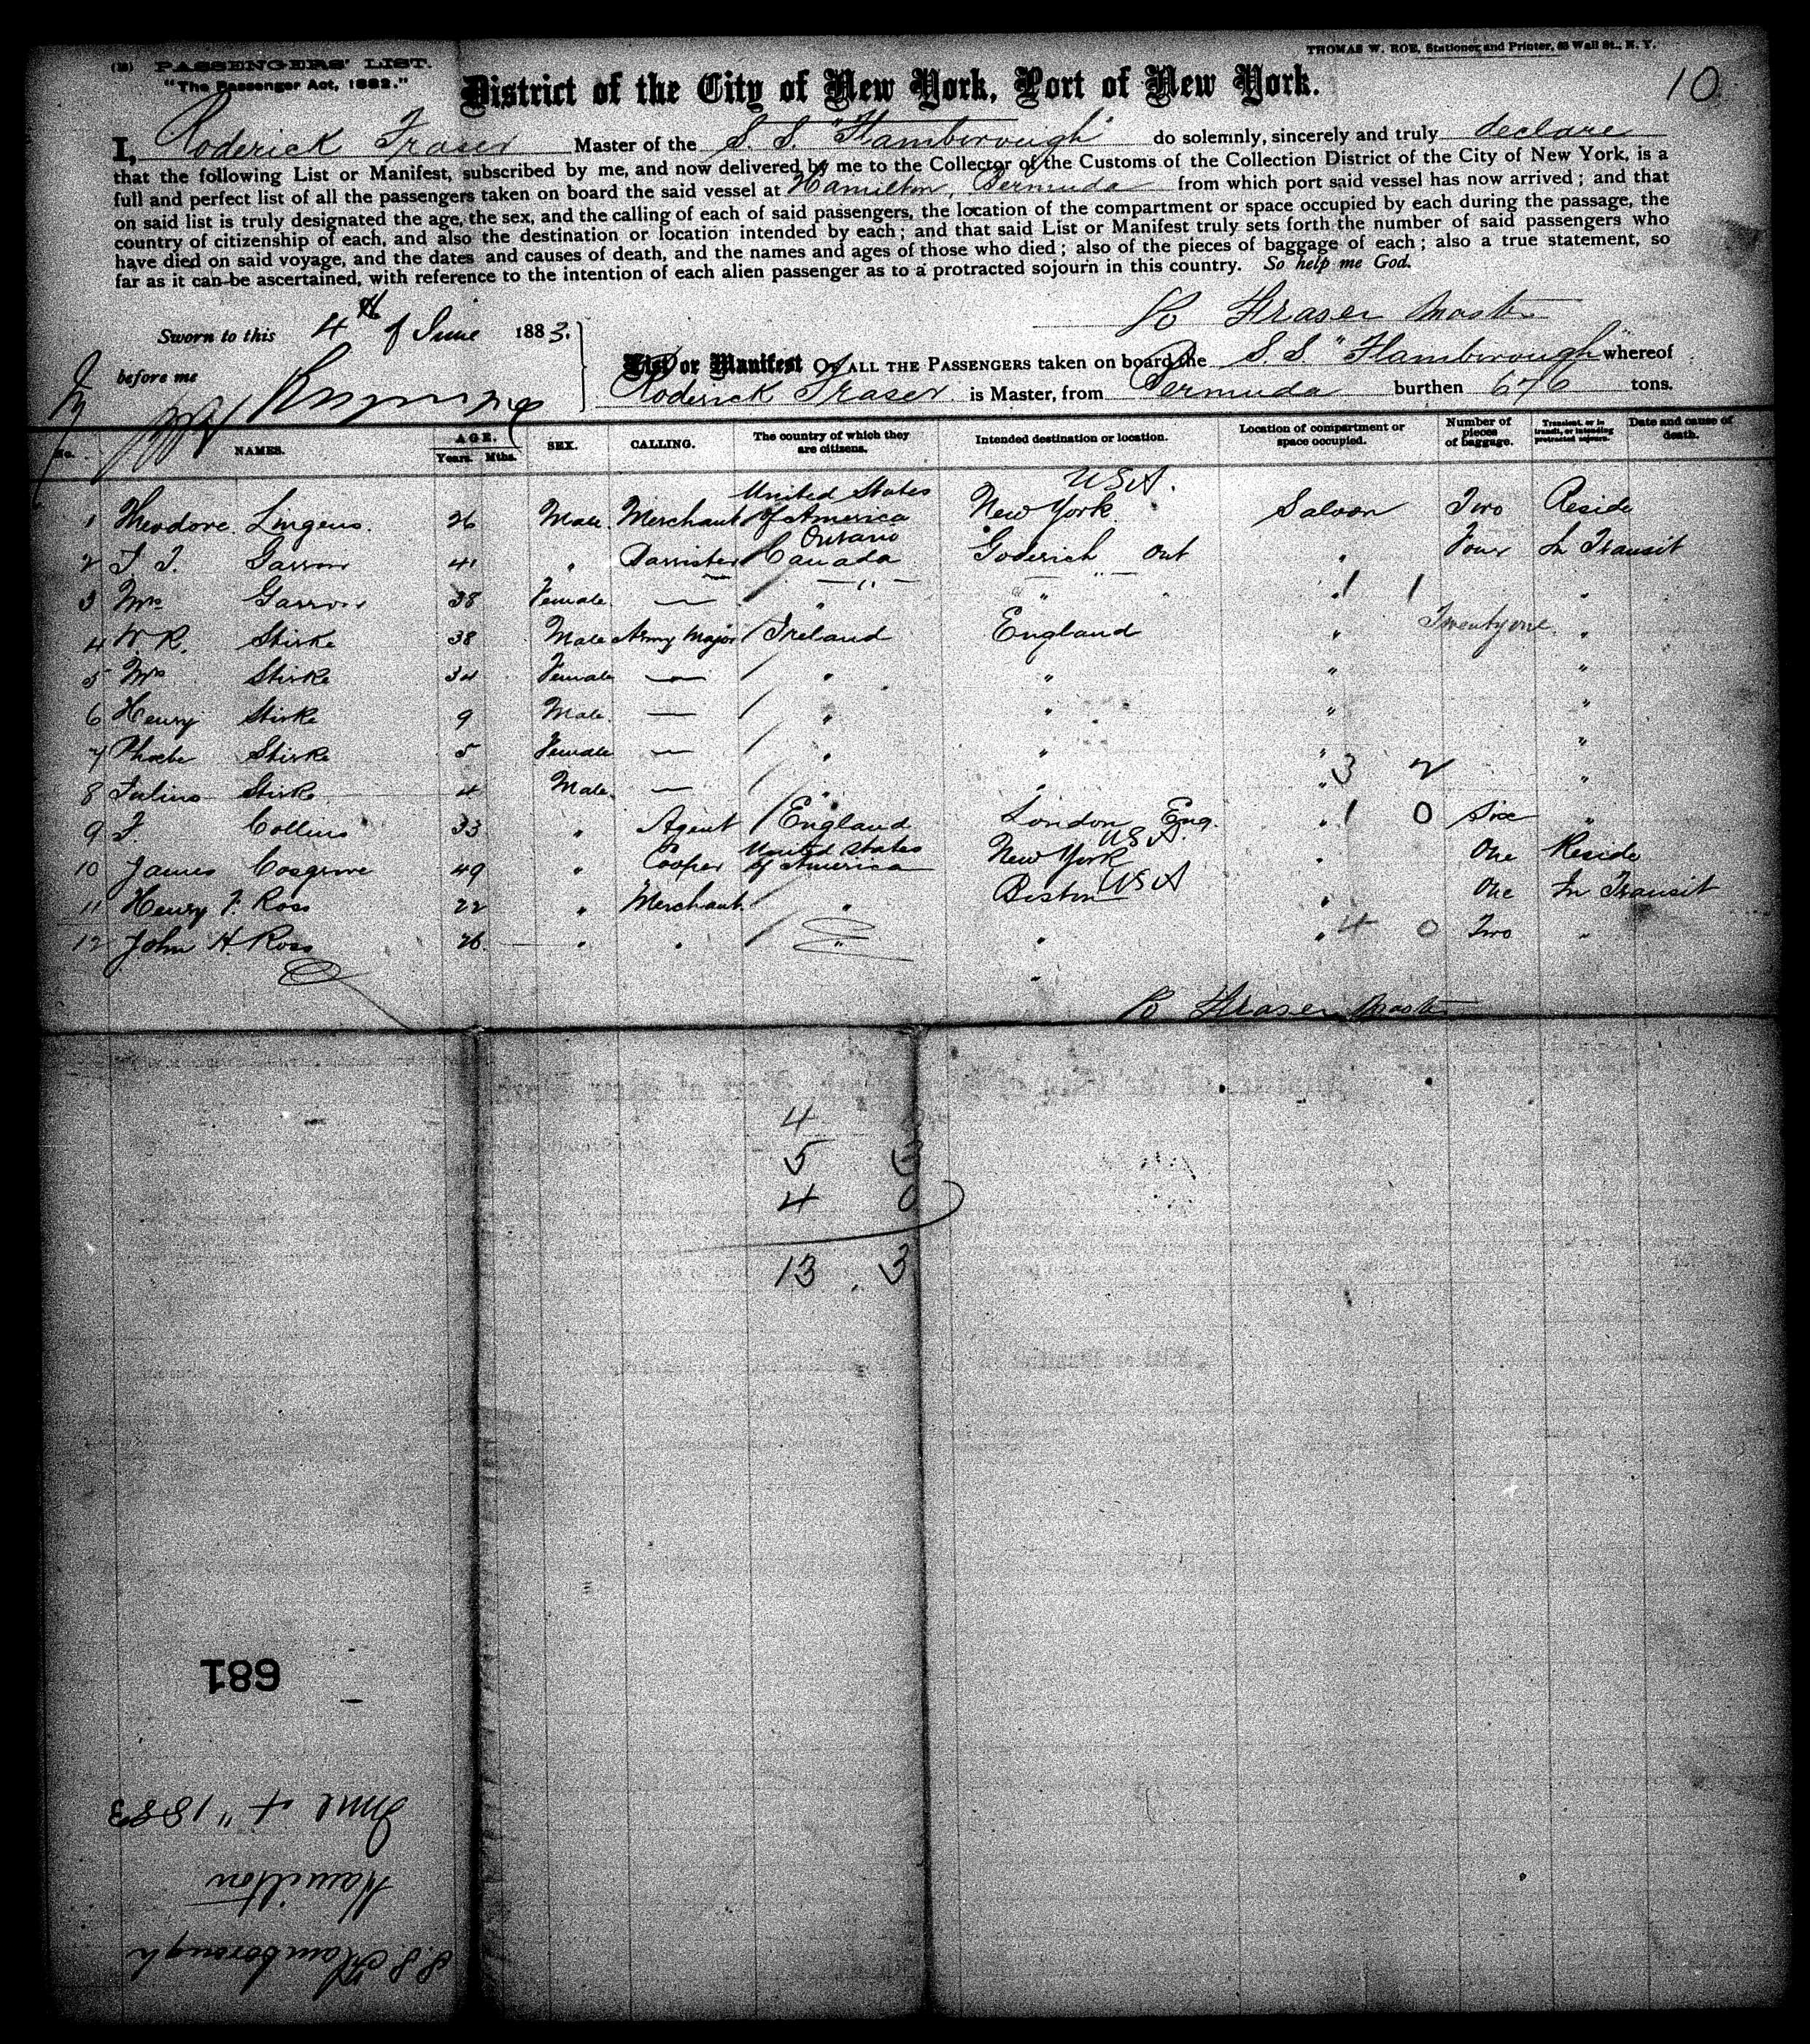 (18) PASSENGERS' LIST.
"The Passenger Act, 1882."
THOMAS W. ROE, Stationer and Printer, 65 Wall St., N. Y.
10
District of the City of New York, Port of New York.
I, Roderick Fraser Master of the S. S. "Flamborough" do solemnly, sincerely and truly declare
that the following List or Manifest, subscribed by me, and now delivered by me to the Collector of the Customs of the Collection District of the City of New York, is a
full and perfect list of all the passengers taken on board the said vessel at Hamilton, Bermuda from which port said vessel has now arrived; and that
on said list is truly designated the age, the sex, and the calling of each of said passengers, the location of the compartment or space occupied by each during the passage, the
country of citizenship of each, and also the destination or location intended by each; and that said List or Manifest truly sets forth the number of said passengers who
have died on said voyage, and the dates and causes of death, and the names and ages of those who died; also of the pieces of baggage of each; also a true statement, so
far as it can be ascertained, with reference to the intention of each alien passenger as to a protracted sojourn in this country. So help me God.
Sworn to this 4th of June 1883.
Ro Fraser Master
before me
List or Manifest OF ALL THE PASSENGERS taken on board the S. S. "Flamborough whereof
Roderick Fraser is Master, from Bermuda burthen 676 tons.
No. NAMES. AGE. Years. Mths. SEX. CALLING. The country of which they are citizens. Intended destination or location. Location of compartment or space occupied. Number of pieces of baggage. Transient, or in transit, or intending protracted sojourn. Date and cause of death.
1 Theodore Lingens. 26 Male. Merchant United States of America New York USA. Saloon Two Reside
2 J. T. Garrow 41 " Barrister Ontario Canada Goderich Ont " Four In Transit
3 Mrs Garrow 38 Female. — " " " 1 1 "
4 W. R. Stirke 38 Male Army Major Ireland England " Twenty one "
5 Mrs Stirke 34 Female — " " " "
6 Henry Stirke 9 Male. — " " " "
7 Phoebe Stirke 5 Female — " " " "
8 Julius Stirke 4 Male. — " " " 3 2 "
9 F. Collins 33 " Agent England London Eng. " 1 0 Six "
10 James Cosgrove 49 " Cooper United States of America New York USA. " One Reside
11 Henry F. Ross 22 " Merchant " Boston USA " One In Transit
12 John H. Ross 26 " " " " " 4 0 Two "
Ro Fraser Master
4
5 3
4 0
13 . 3
681
June 4" 1883
Hamilton
S.S. Flamborough